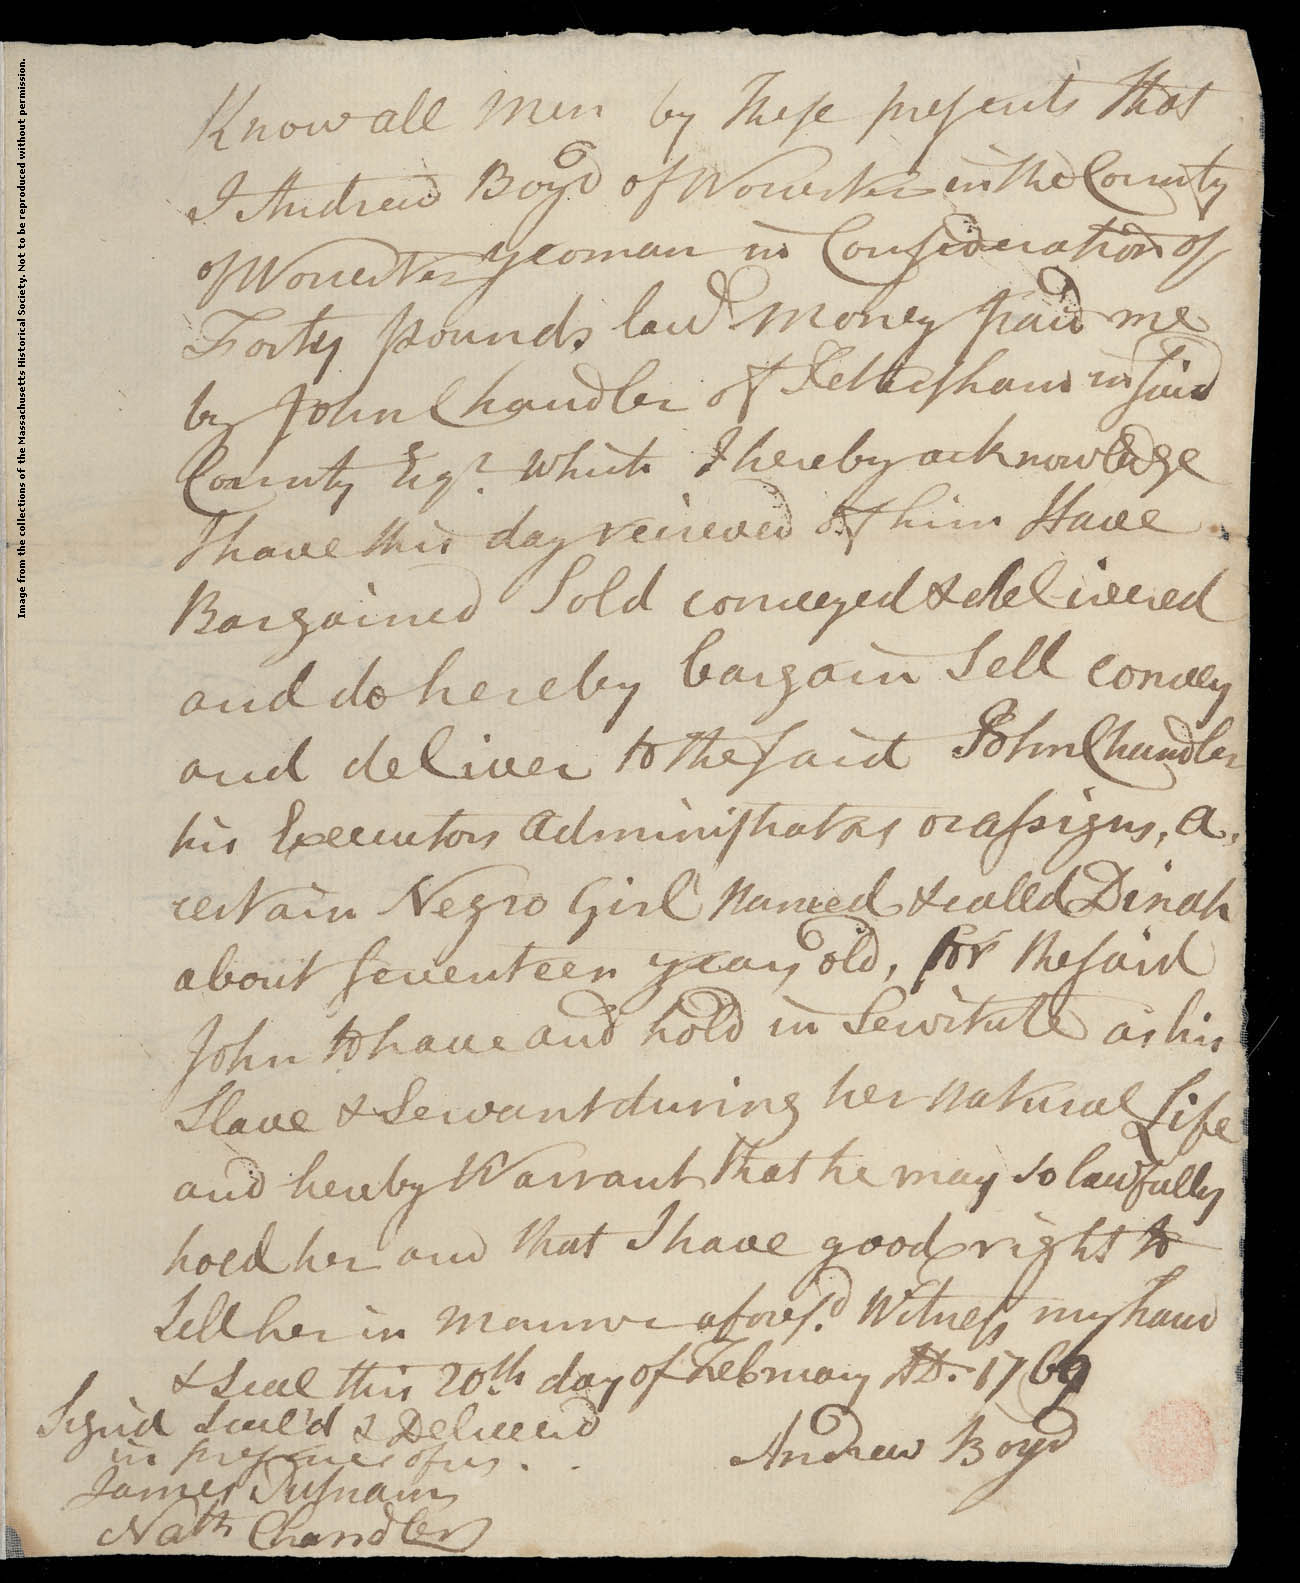 Image from the collections of the Massachusetts Historical Society. Not to be reproduced without permission.
Know all Men by These presents That
I Andrew Boyd of Worcester in the County
of Worcester yeoman in Consideration of
Forty pounds lawl. money paid me
by John Chandler of Petersham in said
County Esqr. which I hereby acknowledge
I have this day recieved of him Have
Bargained Sold conveyed & delivered
and do hereby bargain Sell convey
and deliver to the said John Chandler
his Executors administrators or assigns, a
certain Negro Girl named & called Dinah
about seventeen years old, for the said
John to have and hold in Servitute as his
Slave & Servant during her natural Life
and hereby Warrant That he may so lawfully
hold her and that I have good right to
Sell her in manner afores.d Witness my hand
& Seal this 20th day of February AD. 1769
Sign'd Seal'd & Deliver'd
in presence of us.
Andrew Boyd
James Putnam
Nath Chandler